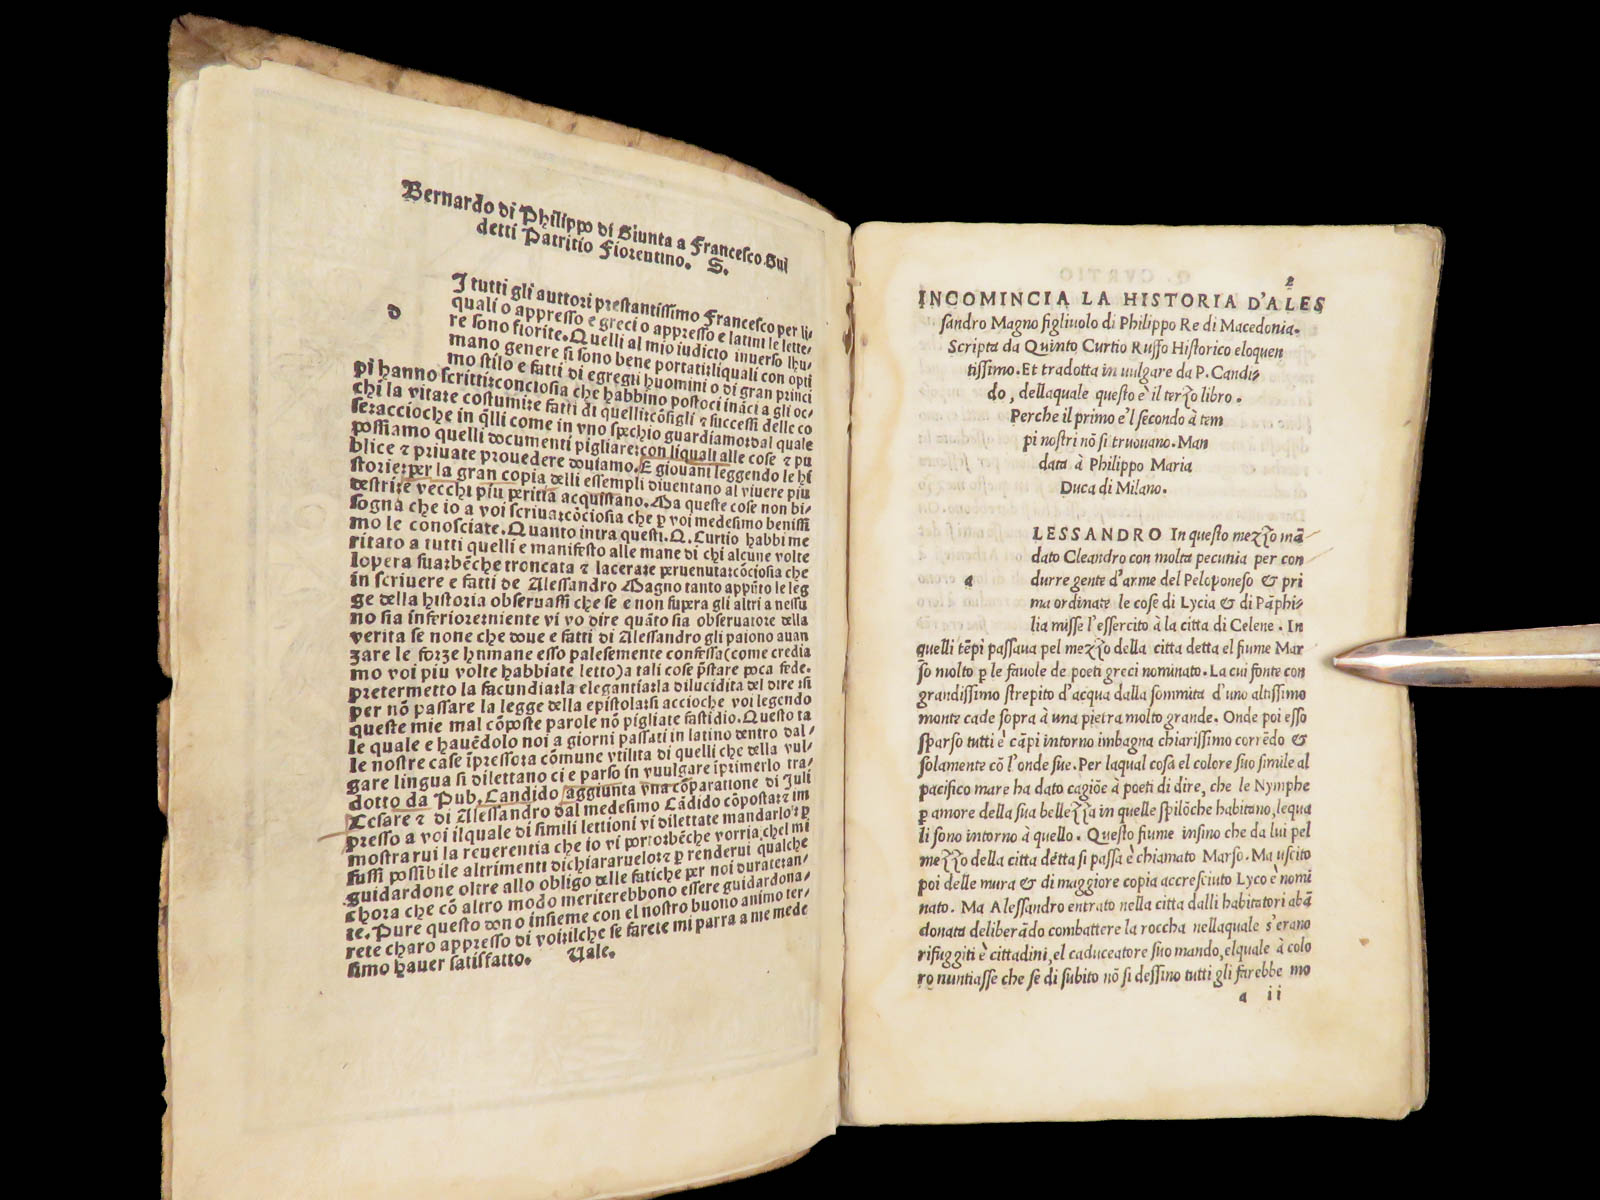 Bernardo di Philippo di Giunta a Francesco Gui
detti Patritio Fiorentino. S.
d
I tutti gli auttori prestantissimo Francesco per li-
quali o appresso e greci o appresso e latini le lette-
re sono fiorite. Quelli al mio iudicio inuerso lhu-
mano genere si sono bene portati: liquali con opti
mo stilo e fatti di egregii huomini o di gran princi
pi hanno scritti: conciosia che habbino postoci inãci a gli oc-
chi la vita: e costumi: e fatti di quelli: e cõsigli ⁊ successi delle co
se: accioche in q̃lli come in vno specchio guardiamo: dal quale
possiamo quelli documenti pigliare: con liquali alle cose ⁊ pu
blice ⁊ priuate prouedere douiamo. E giouani leggendo le hi
storie: per la gran copia delli essempli diuentano al viuere piu
destri: e vecchi piu peritia acquistano. Ma queste cose non bi-
sogna che io a voi scriua: cõciosia che p̱ voi medesimo benissi
mo le conosciate. Quanto intra questi. Q. Curtio habbi me
ritato a tutti quelli e manifesto alle mane di chi alcune volte
lopera sua: bẽche troncata ⁊ lacera: e peruenuta: cõciosia che
in scriuere e fatti de Alessandro Magno tanto appũto le leg
ge della historia obseruassi che se e non supera gli altri a nessu
no sia inferiore: niente vi vo dire quãto sia obseruatore della
verita se none che doue e fatti di Alessandro gli paiono auan
zare le forze humane esso palesemente confessa (come credia
mo voi piu volte habbiate letto) a tali cose p̃stare poca fede.
pretermetto la facundia: la elegantia: la dilucidita del dire: si
per nõ passare la legge della epistola: si accioche voi legendo
queste mie mal cõposte parole nõ pigliate fastidio. Questo ta
le quale e hauẽdolo noi a giorni passati in latino dentro dal-
le nostre case ĩpresso: a cõmune vtilita di quelli che della vul-
gare lingua si dilettano ci e parso in vuulgare ĩprimerlo tra-
dotto da Pub. Candido aggiunta vna cõparatione di Iuli
Cesare ⁊ di Alessandro dal medesimo Cãdido cõposta: ⁊ im
presso a voi ilquale di simili lettioni vi dilettate mandarlo: ⁊ p̱
mostrarui la reuerentia che io vi porto: bẽche vorria chel mi
fussi possibile altrimenti dichiararuelo: ⁊ p̱ renderui qualche
guidardone oltre allo obligo delle fatiche per noi durate: an-
chora che cõ altro modo meriterebbono essere guidardona-
te. Pure questo dono insieme con el nostro buono animo ter-
rete charo appresso di voi: ilche se farete mi parra a me mede
simo hauer satisfatto. Uale.
2
INCOMINCIA LA HISTORIA D'ALES
sandro Magno figliuolo di Philippo Re di Macedonia.
Scripta da Quinto Curtio Ruffo Historico eloquen
tissimo. Et tradotta in uulgare da P. Candi-
do, dellaquale questo è il terzo libro.
Perche il primo e'l secondo à tem
pi nostri nõ si truouano. Man
data à Philippo Maria
Duca di Milano.
a
LESSANDRO In questo mezzo mã-
dato Cleandro con molta pecunia per con
durre gente d'arme del Peloponeso & pri
ma ordinate le cose di Lycia & di Pãphi-
lia misse l'essercito à la citta di Celene. In
quelli tẽpi passaua pel mezzo della citta detta el fiume Mar
so molto p̱ le fauole de poeti greci nominato. La cui fonte con
grandissimo strepito d'acqua dalla sommita d'uno altissimo
monte cade sopra à una pietra molto grande. Onde poi esso
sparso tutti è cãpi intorno imbagna chiarissimo corrẽdo &
solamente cõ l'onde sue. Per laqual cosa el colore suo simile al
pacifico mare ha dato cagiõe à poeti di dire, che le Nymphe
p̱ amore della sua bellezza in quelle spilõche habitano, lequa
li sono intorno à quello. Questo fiume insino che da lui pel
mezzo della citta detta si passa è chiamato Marso. Ma uscito
poi delle mura & di maggiore copia accresciuto Lyco è nomi
nato. Ma Alessandro entrato nella citta dalli habitatori abã
donata deliberãdo combattere la roccha nellaquale s'erano
rifuggiti è cittadini, el caduceatore suo mando, elquale à colo
ro nuntiasse che se di subito nõ si dessino tutti gli farebbe mo
a ii